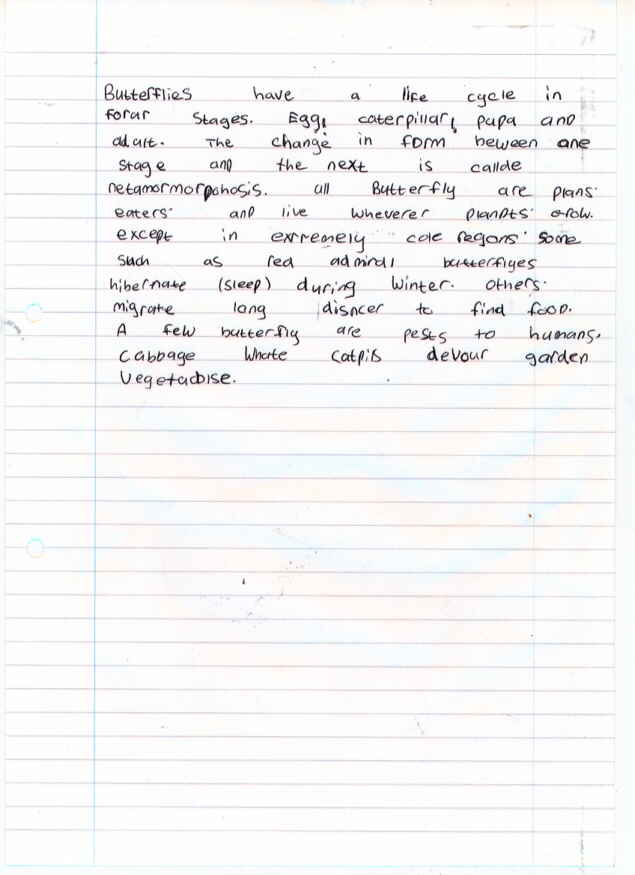 Butterflies have a life cycle in
forar stages. Egg, caterpillar, pupa and
adult. The change in form beween one
stage and the next is callde
metamormorpohosis. all Butterfly are plans
eaters and live wheverer plandts grow.
except in exrremely cole regons some
such as red admiral butterfiyes
hibernate (sleep) during winter. Others.
migrate long disncer to find food.
A few butterfly are pests to humans.
Cabbage Whote Catpils devour garden
Vegetacbise.